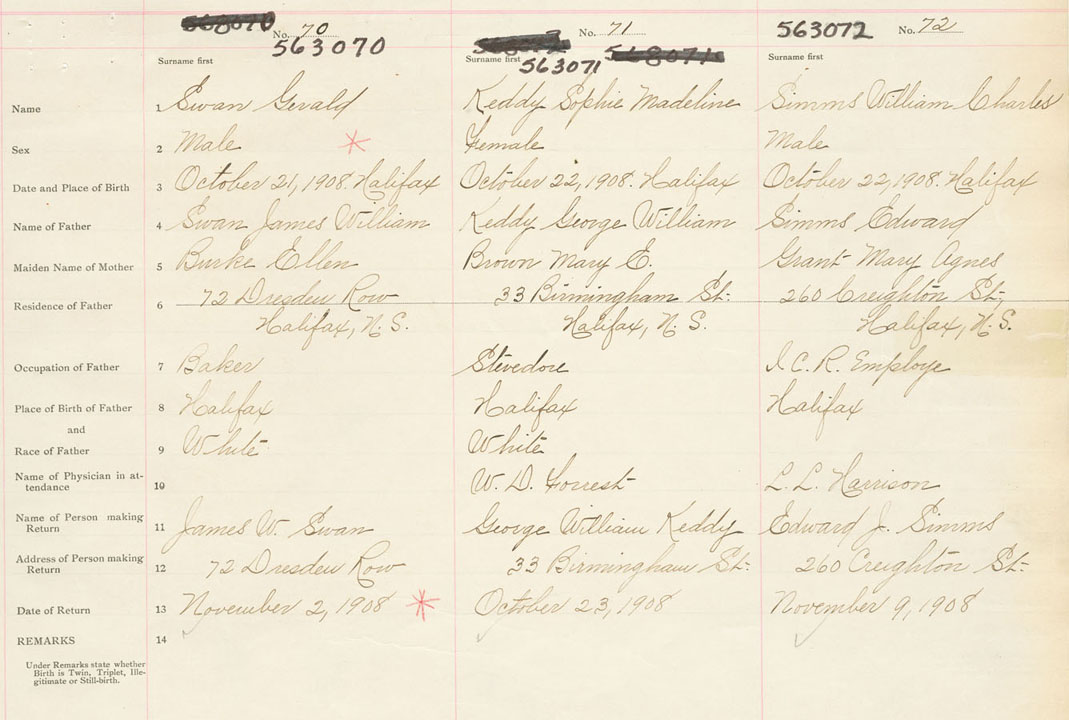 No. 70 No. 71 563072 No. 72
563070 563071
Surname first Surname first Surname first
Name 1 Swan Gerald Keddy Sophie Madeline Simms William Charles
Sex 2 Male Female Male
Date and Place of Birth 3 October 21, 1908. Halifax October 22, 1908. Halifax October 22, 1908. Halifax
Name of Father 4 Swan James William Keddy George William Simms Edward
Maiden Name of Mother 5 Burke Ellen Brown Mary E. Grant Mary Agnes
Residence of Father 6 72 Dresden Row 33 Birmingham St. 260 Creighton St,
Halifax, N. S. Halifax, N. S. Halifax, N. S.
Occupation of Father 7 Baker Stevedore I. C. R. Employe
Place of Birth of Father 8 Halifax Halifax Halifax
and
Race of Father 9 White White
Name of Physician in at-
tendance 10 W. D. Forrest L. L. Harrison
Name of Person making
Return 11 James W. Swan George William Keddy Edward J. Simms
Address of Person making
Return 12 72 Dresden Row 33 Birmingham St. 260 Creighton St.
Date of Return 13 November 2, 1908 October 23, 1908 November 9, 1908
REMARKS 14
Under Remarks state whether
Birth is Twin, Triplet, Ille-
gitimate or Still-birth.